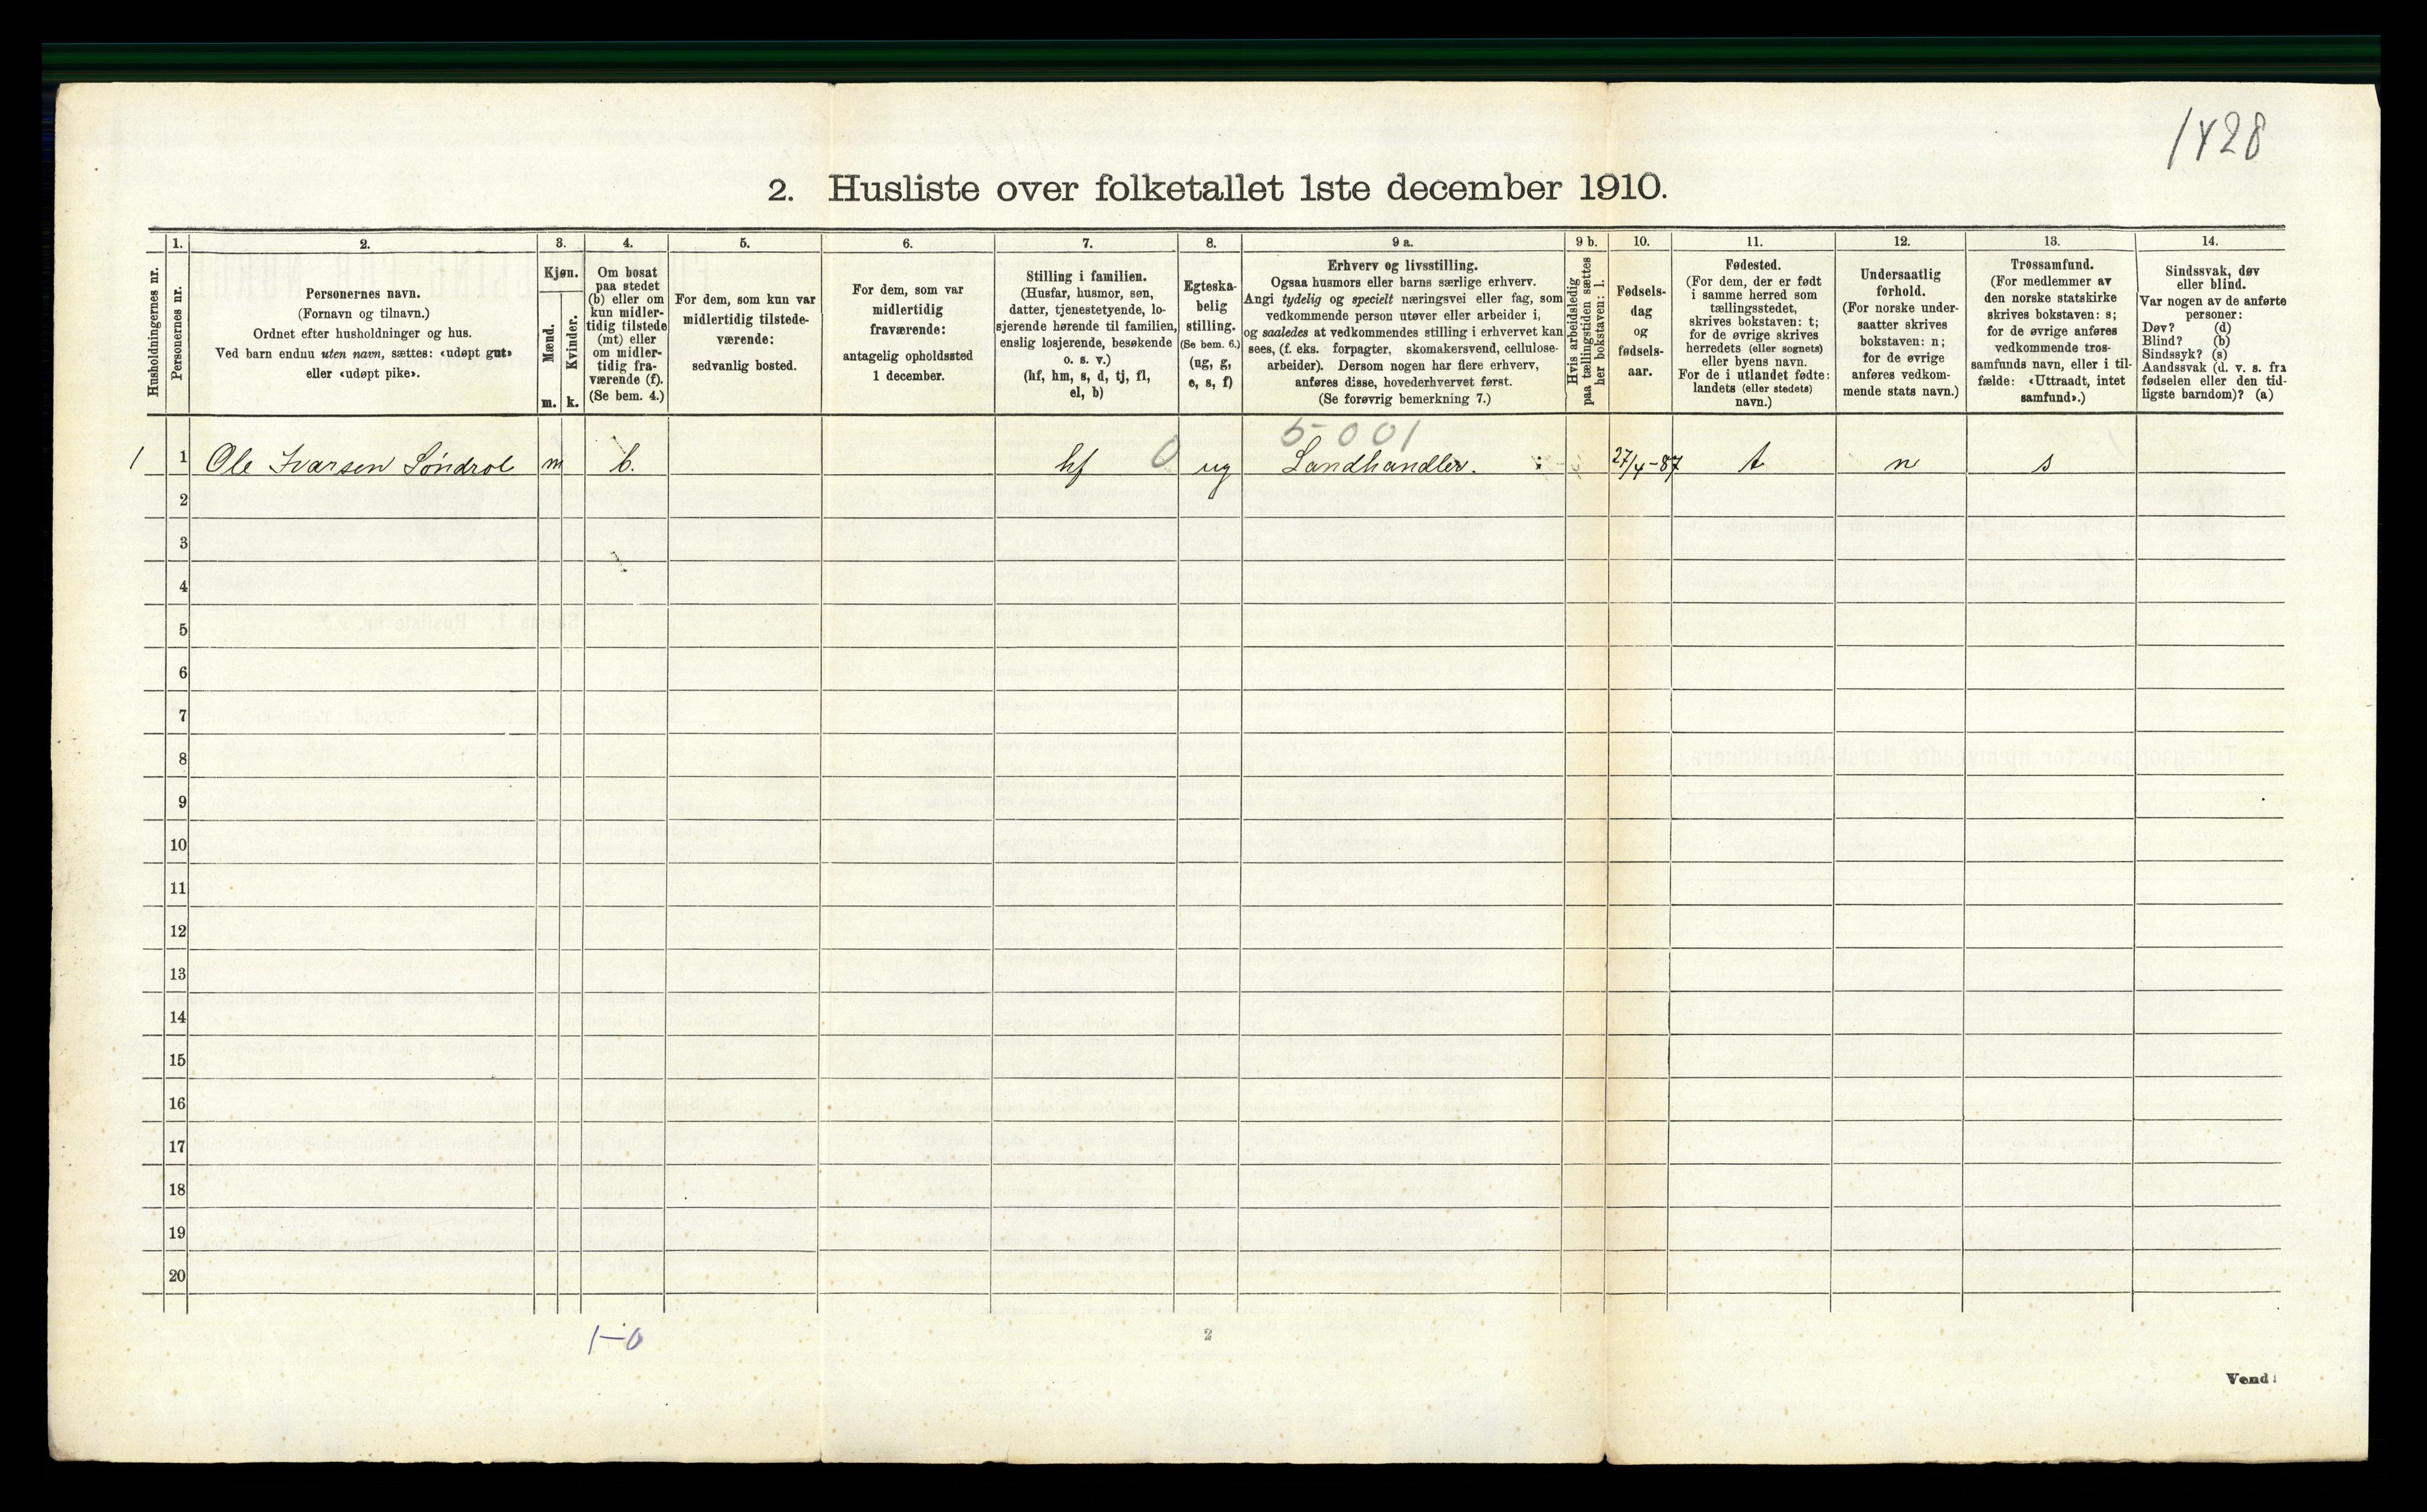 1428
2. Husliste over folketallet 1ste december 1910.
Husholdningernes nr.
1.
Personernes nr.
2.
Personernes navn.
(Fornavn og tilnavn.)
Ordnet efter husholdninger og hus.
Ved barn endnu uten navn, sættes: «udøpt gut»
eller «udøpt pike».
3.
Kjøn.
Mænd.
Kvinder.
m. k.
4.
Om bosat
paa stedet
(b) eller om
kun midler-
tidig tilstede
(mt) eller
om midler-
tidig fra-
værende (f).
(Se bem. 4.)
5.
For dem, som kun var
midlertidig tilstede-
værende:
sedvanlig bosted.
6.
For dem, som var
midlertidig
fraværende:
antagelig opholdssted
1 december.
7.
Stilling i familien.
(Husfar, husmor, søn,
datter, tjenestetyende, lo-
sjerende hørende til familien,
enslig losjerende, besøkende
o. s. v.)
(hf, hm, s, d, tj, fl,
el, b)
8.
Egteska-
belig
stilling.
(Se bem. 6.)
(ug, g,
e, s, f)
9 a.
Erhverv og livsstilling.
Ogsaa husmors eller barns særlige erhverv.
Angi tydelig og specielt næringsvei eller fag, som
vedkommende person utøver eller arbeider i,
og saaledes at vedkommendes stilling i erhvervet kan
sees, (f. eks. forpagter, skomakersvend, cellulose-
arbeider). Dersom nogen har flere erhverv,
anføres disse, hovederhvervet først.
(Se forøvrig bemerkning 7.)
9 b.
Hvis arbeidsledig
paa tællingstiden sættes
her bokstaven: l.
10.
Fødsels-
dag
og
fødsels-
aar.
11.
Fødested.
(For dem, der er født
i samme herred som
tællingsstedet,
skrives bokstaven: t;
for de øvrige skrives
herredets (eller sognets)
eller byens navn.
For de i utlandet fødte:
landets (eller stedets)
navn.)
12.
Undersaatlig
forhold.
(For norske under-
saatter skrives
bokstaven: n;
for de øvrige
anføres vedkom-
mende stats navn.)
13.
Trossamfund.
(For medlemmer av
den norske statskirke
skrives bokstaven: s;
for de øvrige anføres
vedkommende tros-
samfunds navn, eller i til-
fælde: «Uttraadt, intet
samfund».)
14.
Sindssvak, døv
eller blind.
Var nogen av de anførte
personer:
Døv? (d)
Blind? (b)
Sindssyk? (s)
Aandssvak (d. v. s. fra
fødselen eller den tid-
ligste barndom)? (a)
5-001
1 1 Ole Ivarsen Söndrol m b. hf 0 ug Landhandler. 27/4-87 t n s
2
3
4
5
6
7
8
9
10
11
12
13
14
15
16
17
18
19
20
1-0
2
Vend!